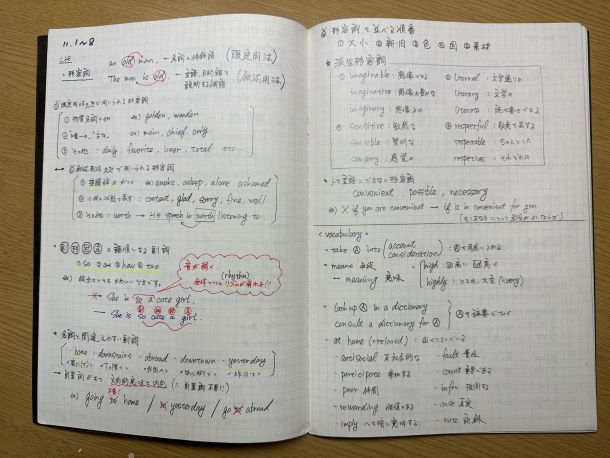 11.1~8
・形容詞
an old man. ← 名詞の修飾語 (限定用法)
The man is old. ← 主語、目的語を説明する補語 (叙述用法)
限定用法で用いられる形容詞
① 物質名詞+en ex) golden, wooden
ex) main, chief, only
③ others: daily, favorite, inner, total etc
叙述用法で用いられる形容詞
① ex) awake, asleep, alone, ashamed
② ex) content, glad, sorry, fine, well
③ others: worth → His speech is worth listening to.
語順になる副詞
① so ② as ③ how ④ too
ex) 彼女はとてもかわいい少女です。
× She is so a cute girl.
→ She is so cute a girl.
音が続く
(rhythm)
リズムが崩れる!!
・名詞と間違えやすい副詞
・home ・downstairs ・abroad ・downtown ・yesterday
→ 前置詞がなく (∴ 前置詞 不要!!)
不要!
ex) going to home / yesterday / go to abroad
形容詞を並べる順番
① 大小 ② 新旧 ③ 色 ④ 国 ⑤ 素材
☆ 派生形容詞
① imaginable: 想像できる
imaginative: 想像力豊かな
imaginary: 想像上の
② literal: 文字通りの
literary: 文学の
literate: 読み書きできる
③ sensitive: 敏感な
sensible: 賢明な
sensory: 感覚の
④ respectful: 敬意を表する
respectable: ちゃんとした
respective: それぞれの
・人を主語にできない形容詞
convenient, possible, necessary
ex) × if you are convenient → if it is convenient for you
<vocabulary>
・take Ⓐ into (account / consideration): Ⓐを考慮に入れる
・means 手段
↔ meaning 意味
・high: 高い 高く
highly: とても、大変 (very)
・look up Ⓐ in a dictionary
consult a dictionary for Ⓐ } Ⓐを辞書でひく
・at home (=relaxed): くつろいでいる
・antisocial 反社会的な
・participate 参加する
・peer 仲間
・rewarding 価値のある
・imply 暗に意味する
・fault 責任
・count 重要である
・infer 推測する
・case 真実
・note 記録